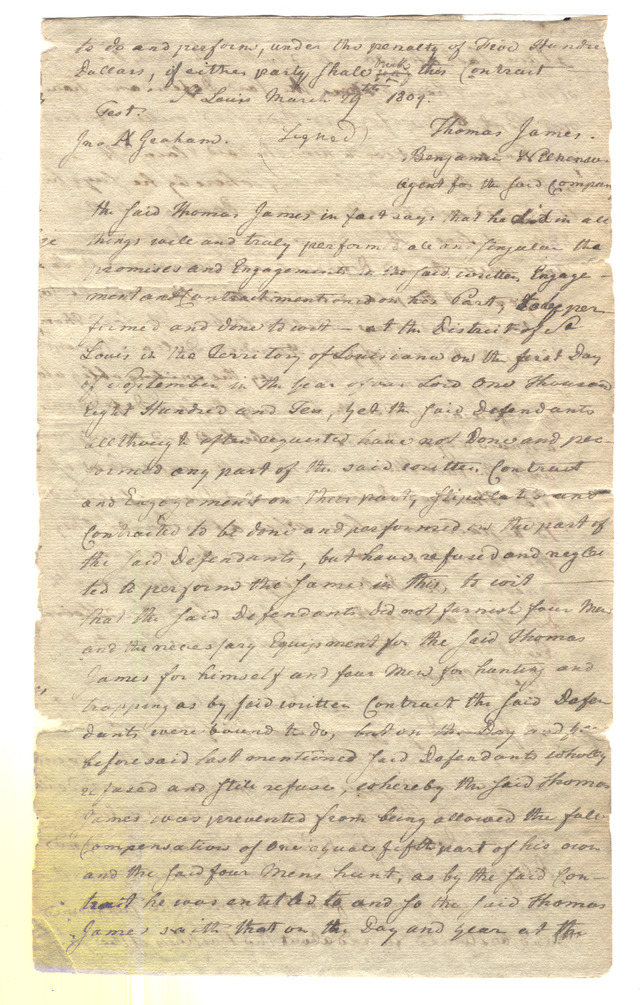 to do and perform, under the penalty of Five Hundre
Dollars, if either party Shall break this Contract
St Louis March 29th 1809.
Test.
Jno A Graham. (Signed) Thomas James.
Benjamin Wilkinson
Agent for the Said Compan
the Said Thomas James in fact says that he did in all
things well and truly perform all and Singular the
promises and Engagements in the said written Engage-
ment and Contract mentioned on his Part, to be per
formed and done to wit — at the District of St
Louis in the Territory of Louisiana on the first Day
of September in the Year of our Lord One Thousan
Eight Hundred and Ten, yet the Said Defendants
allthough often requested have not Done and per-
formed any part of the said written Contract
and Engagement on their part, Stipulated and
Contracted to be done and performed on the part of
the Said Defendants, but have refused and neglec
ted to perform the Same in this, to wit
that the Said Defendants did not furnish four Men
and the necessary Equipment for the Said Thomas
James for himself and four Men for hunting and
trapping as by Said written Contract the Said Defen
dants were bound to do, but on the Day and
before said last mentioned Said Defendants wholly
refused and Still refuse, whereby the Said Thomas
James was prevented from being allowed the full
Compensation of One equal fifth part of his own
and the Said four Mens hunt, as by the Said Con-
tract he was entitled to and So the Said Thomas
James saith that on the Day and year at the